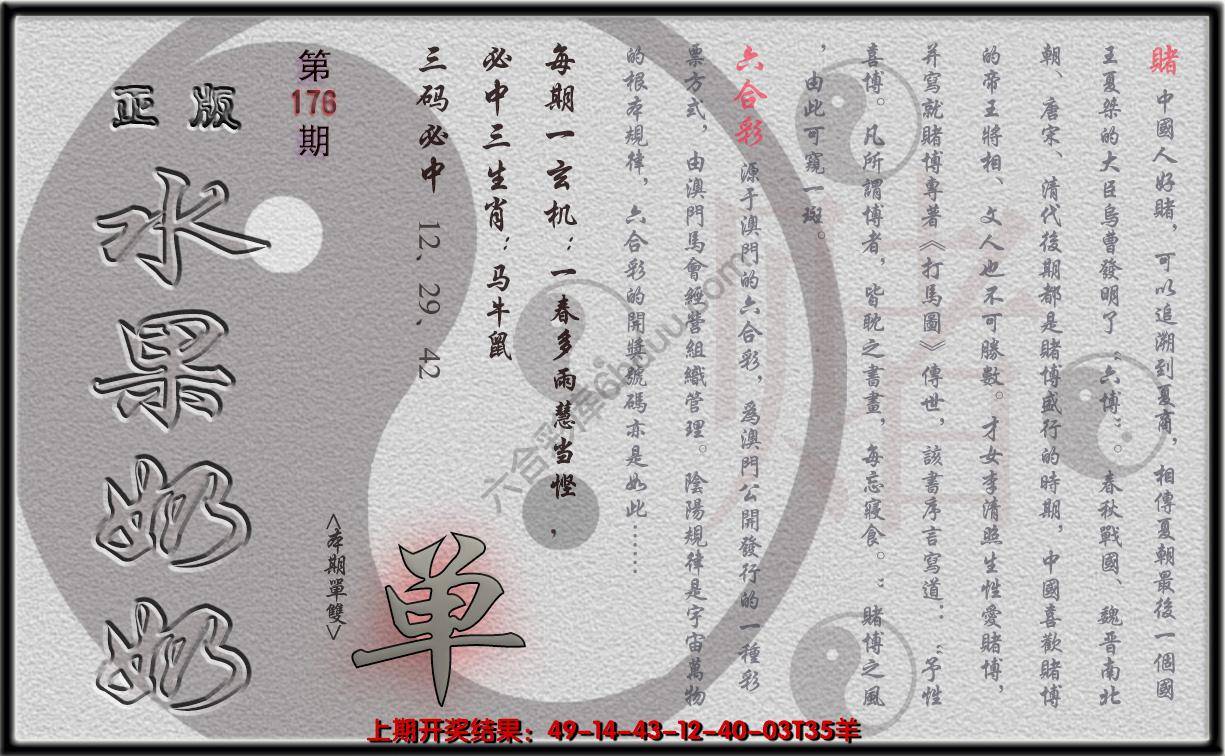 賭 中國人好賭，可以追溯到夏商，相傳夏朝最後一個國
王夏桀的大臣烏曹發明了“六博”。春秋戰國、魏晋南北
朝、唐宋、清代後期都是賭博盛行的時期，中國喜歡賭博
的帝王將相、文人也不可勝數。才女李清照生性愛賭博，
并寫就賭博專著《打馬圖》傳世，該書序言寫道：“予性
喜博。凡所謂博者，皆耽之書畫，每忘寢食。”賭博之風
，由此可窺一斑。
六合彩 源于澳門的六合彩，爲澳門公開發行的一種彩
票方式，由澳門馬會經營組織管理。陰陽規律是宇宙萬物
的根本規律，六合彩的開獎號碼亦是如此……
每期一玄机：一春多雨慧当悭，
必中三生肖：马牛鼠
三码必中 12、29、42
第176期
正版
水果奶奶
<本期單雙>
单
上期开奖结果：49-14-43-12-40-03T35羊